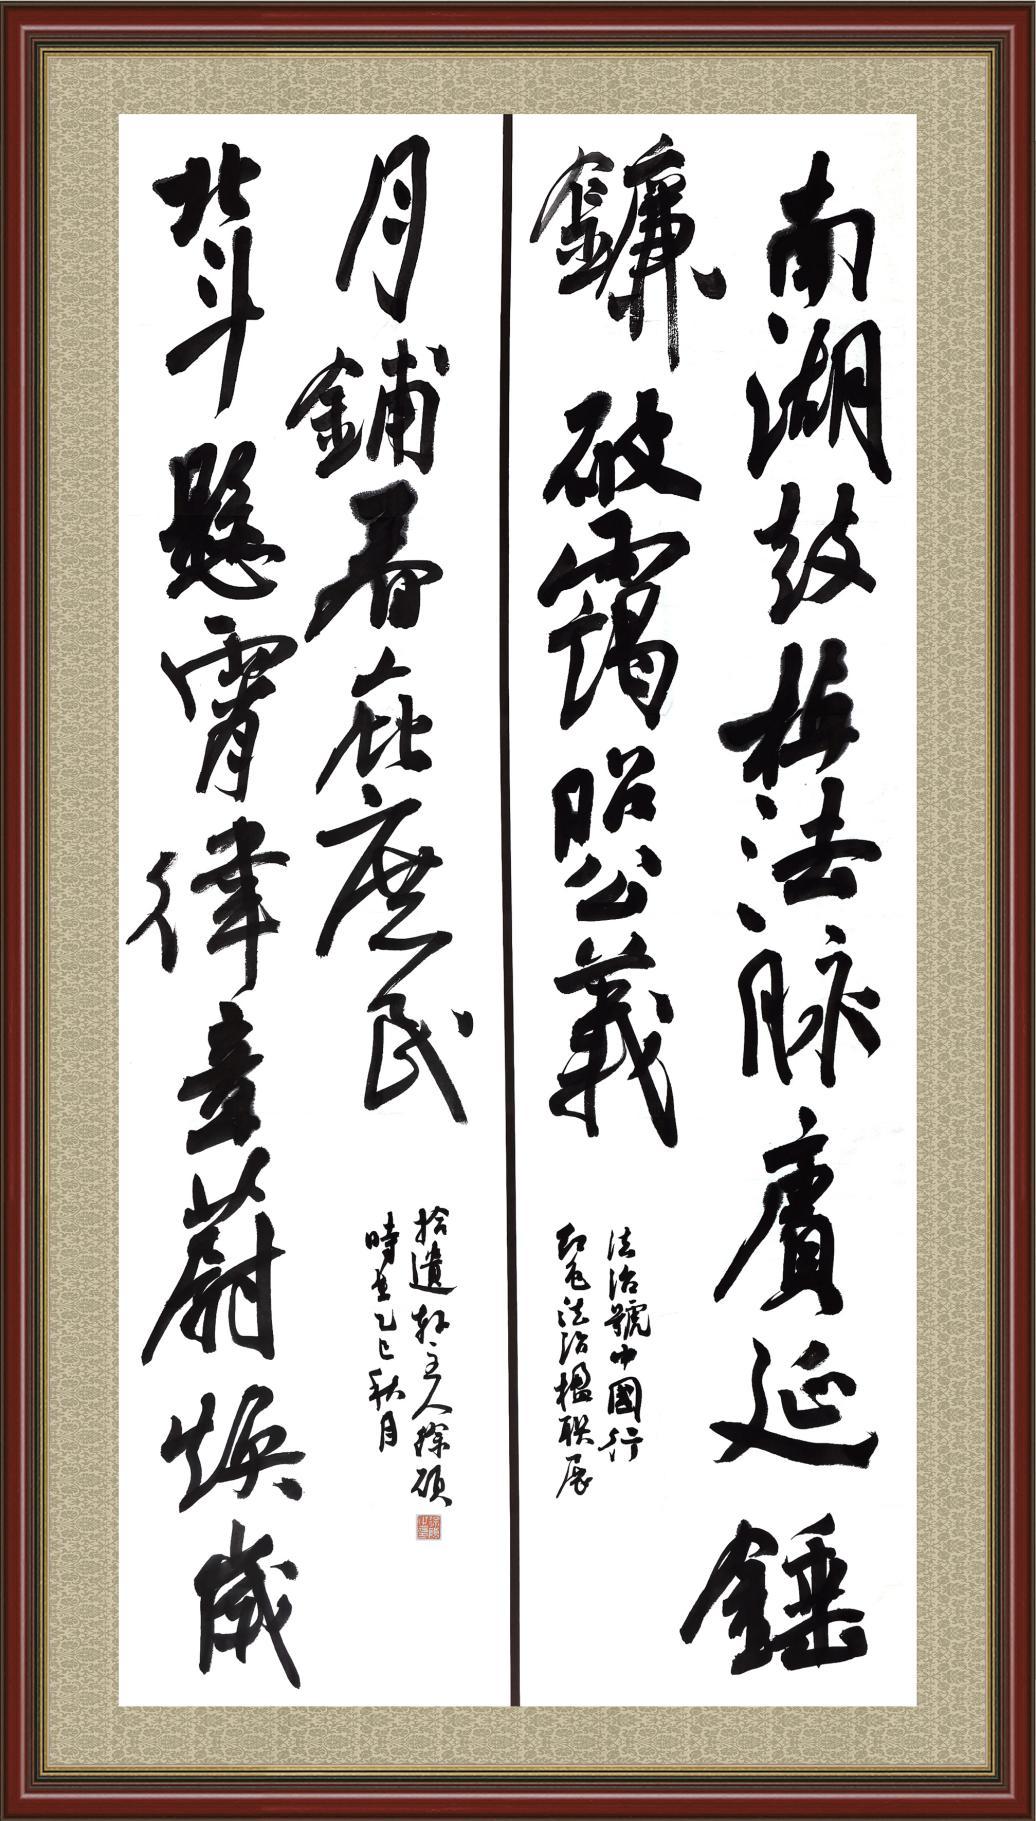 南湖鼓枻法脉賡延錘
鐮破靄昭公義
法治號中國行
紅色法治楹联展
北斗懸霄律章蔚焕歲
月鋪春庇庶民
拾遺軒主人徐碩
時在乙巳秋月